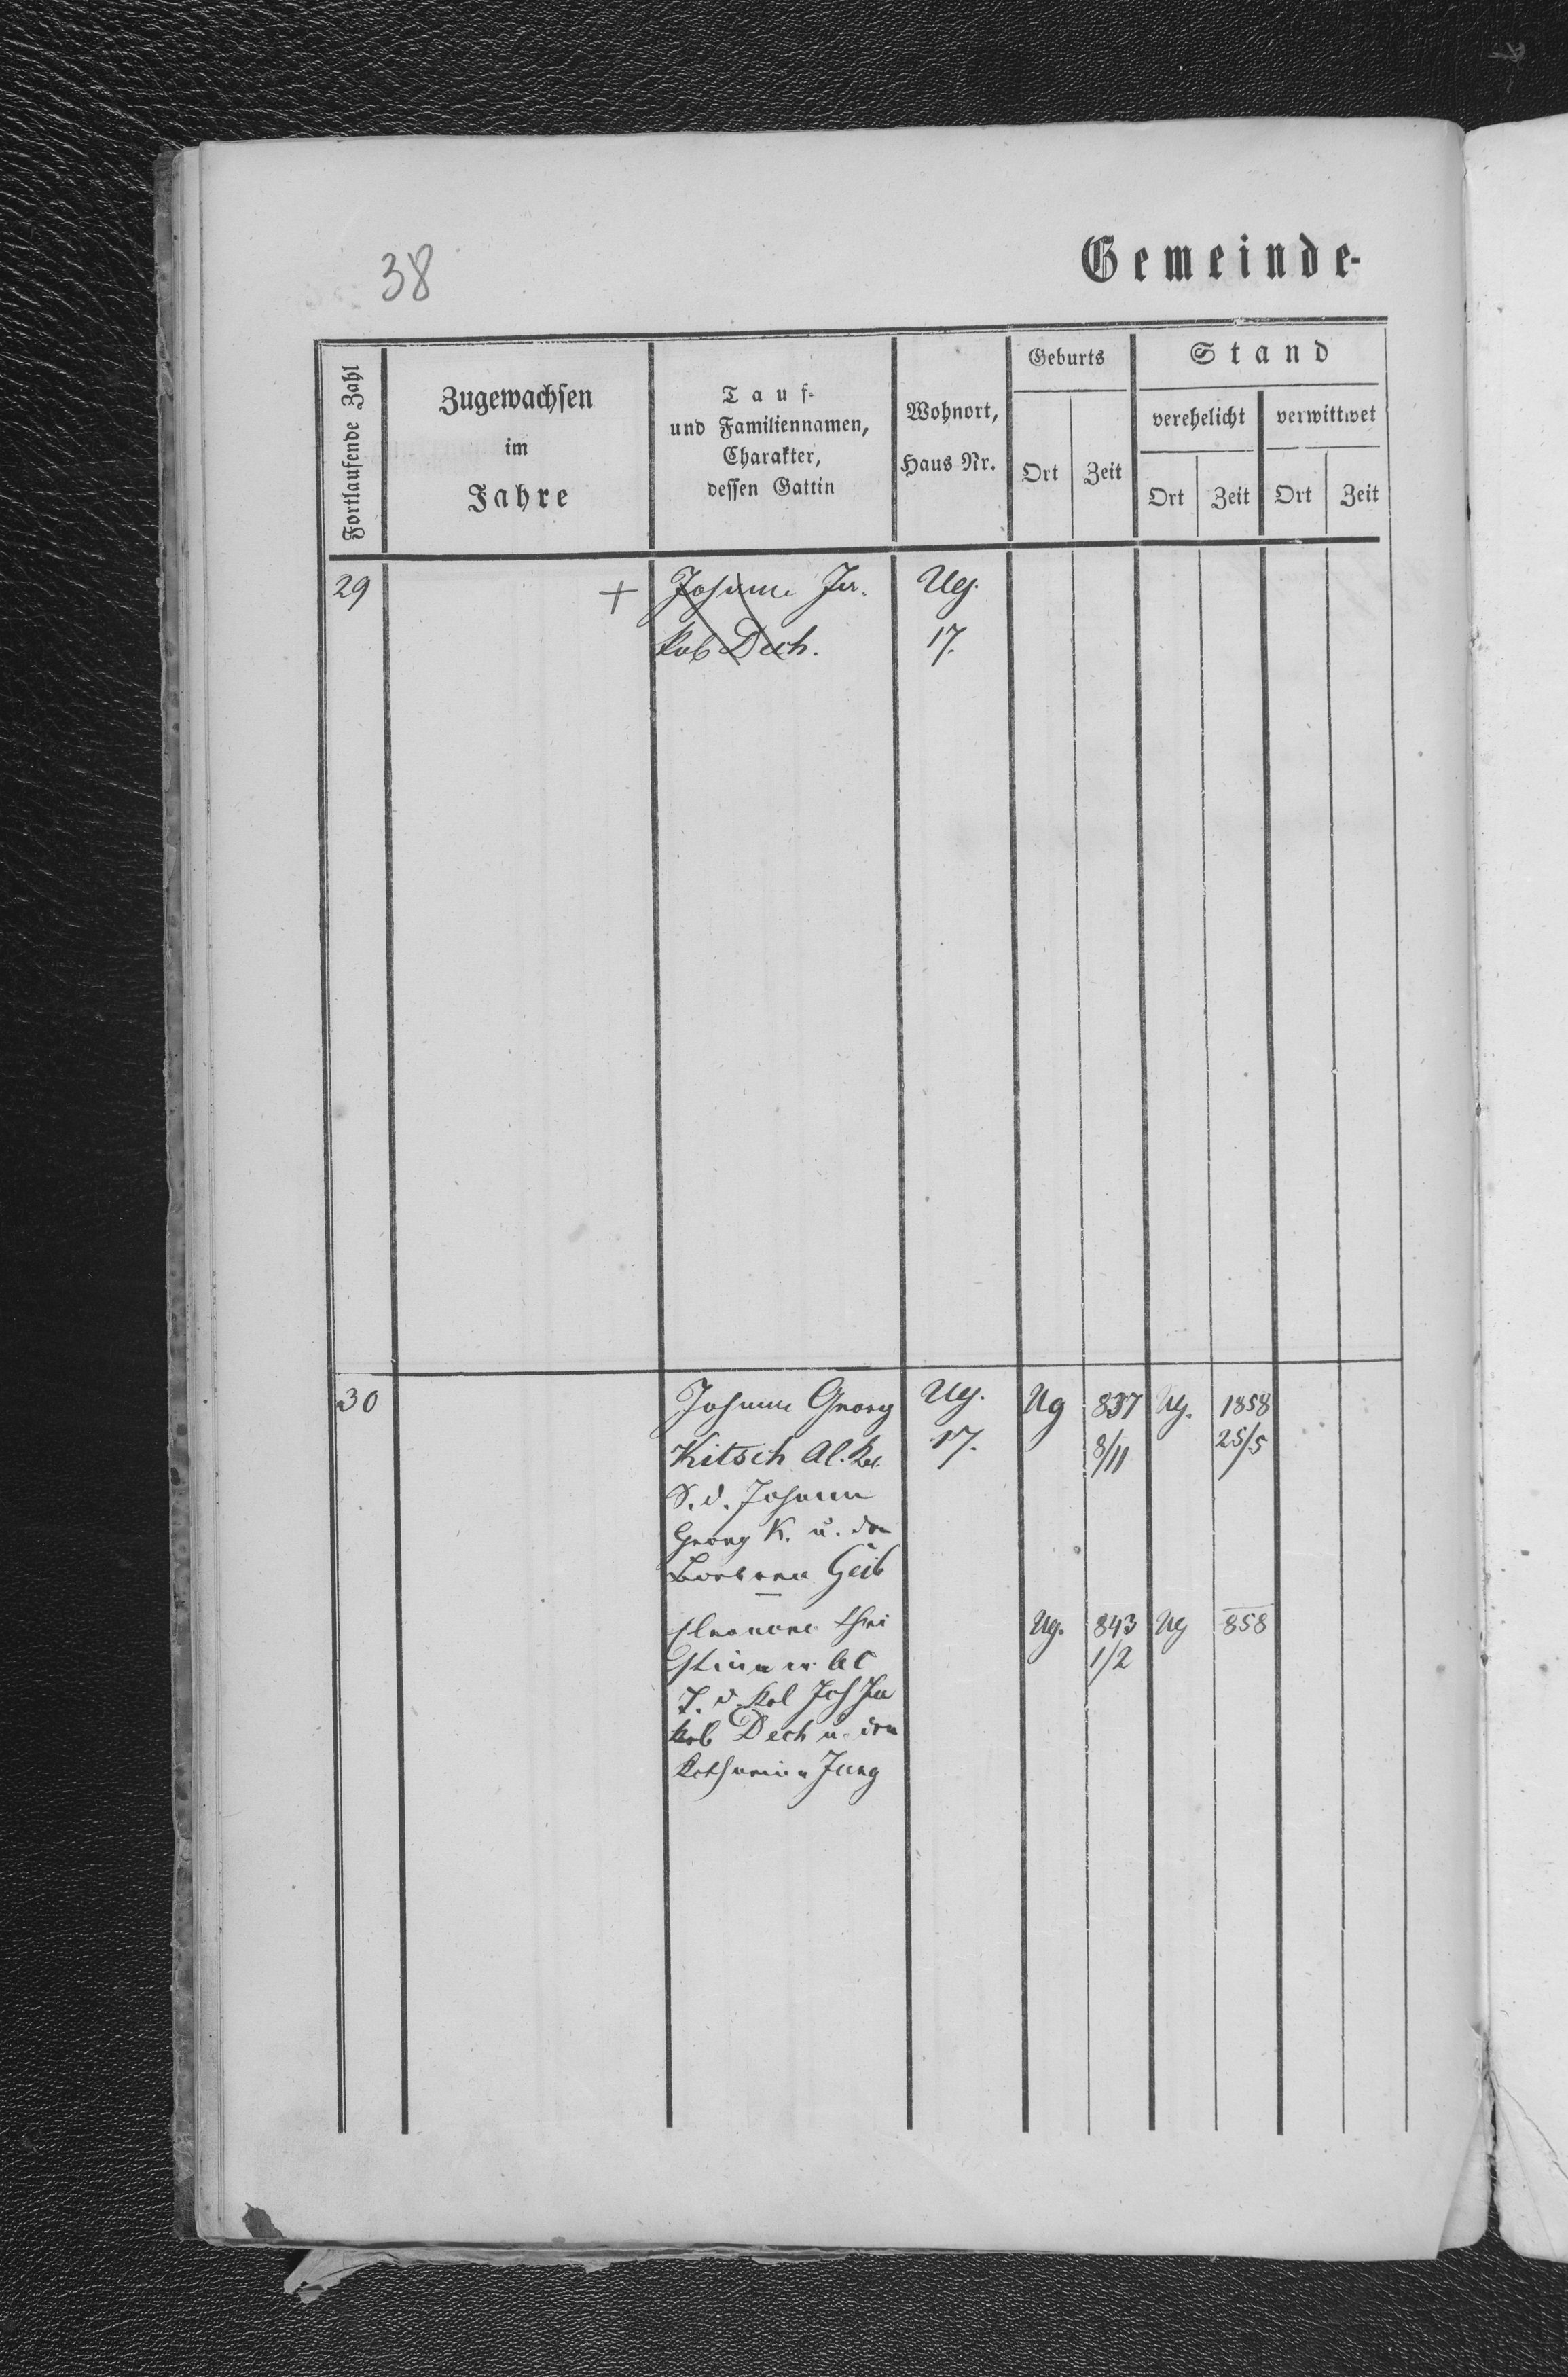 38
Gemeinde-
Fortlaufende Zahl
Zugewachsen
im
Jahre
Tauf-
und Familiennamen,
Charakter,
dessen Gattin
Wohnort,
Haus Nr.
Geburts
Ort
Zeit
Stand
verehelicht
Ort
Zeit
verwittwet
Ort
Zeit
29 + Johann Ja- Ug.
kob Dech. 17.
30 Johann Georg Ug. Ug 837 Ug. 1858
Kitsch 17. 8/11 25/5
S. d. Johann
Georg K. u. der
Barbara Geib
Eleonore Chri Ug. 843 Ug 858
stina 1/2
T. d. Kol Joh Ja
kob Dech u. der
Katharina Jung